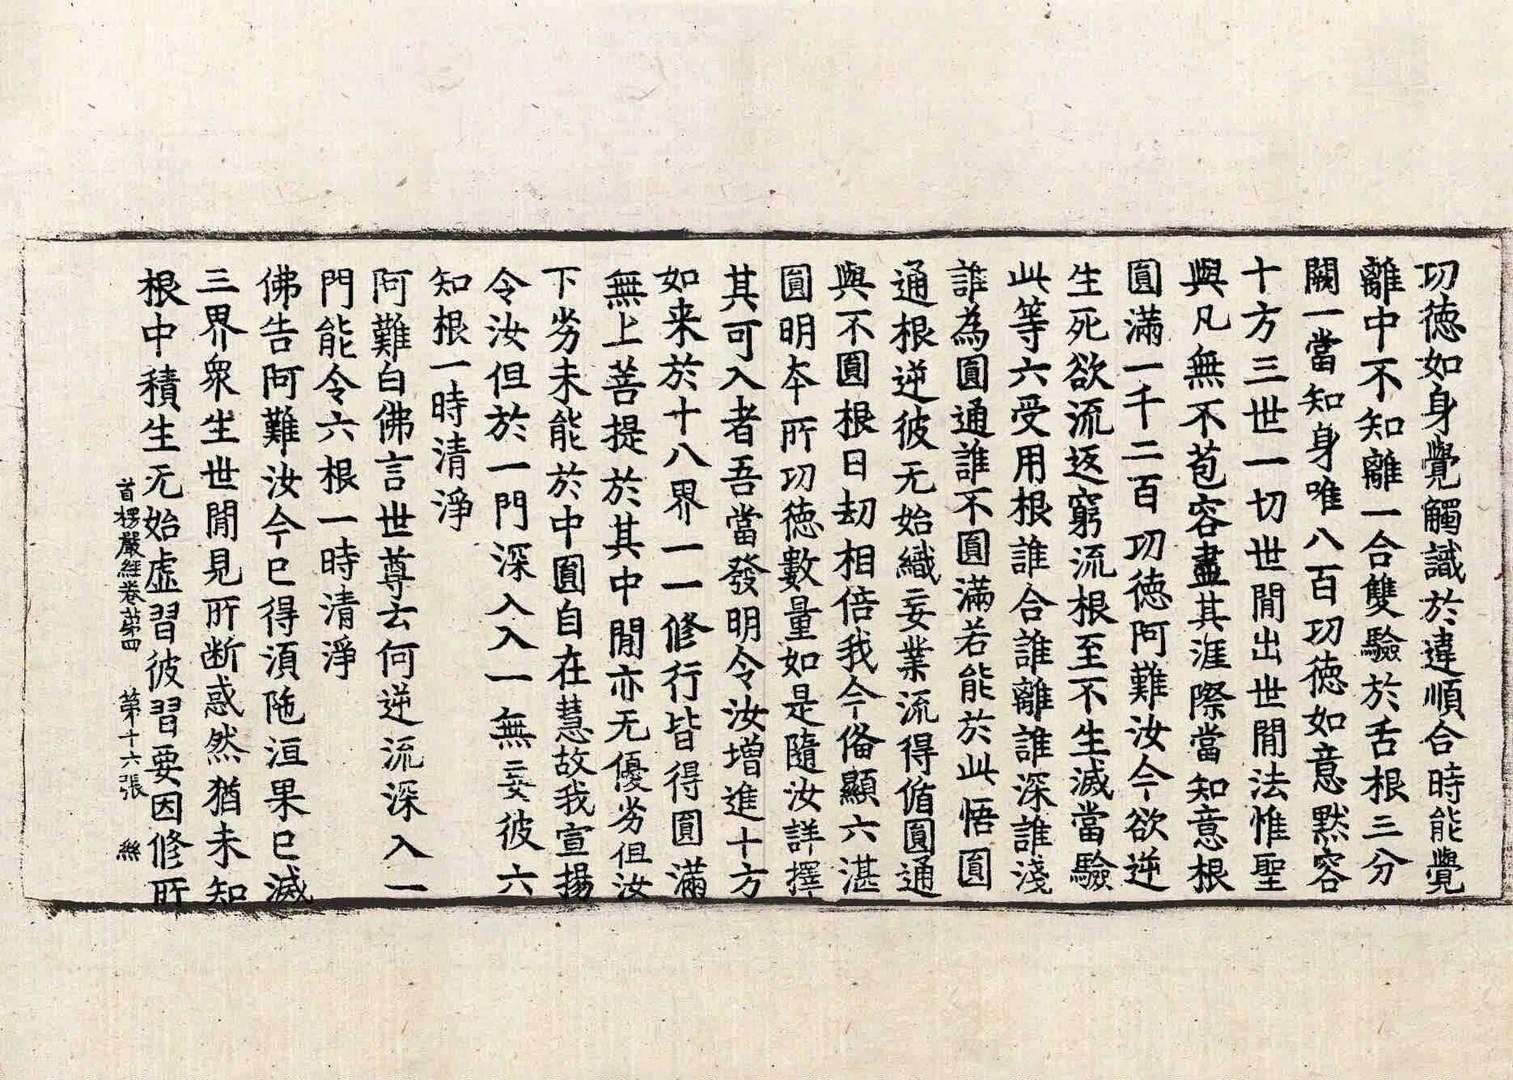 功德如身覺觸識於違順合時能覺
離中不知離一合雙驗於舌根三分
闕一當知身唯八百功德如意默容
十方三世一切世閒出世閒法惟聖
與凡無不苞容盡其涯際當知意根
圓滿一千二百功德阿難汝今欲逆
生死欲流返窮流根至不生滅當驗
此等六受用根誰合誰離誰深誰淺
誰為圓通誰不圓滿若能於此悟圓
通根逆彼无始織妄業流得循圓通
與不圓根日劫相倍我今俻顯六湛
圓明夲所功德數量如是隨汝詳擇
其可入者吾當發明令汝增進十方
如来於十八界一一修行皆得圓滿
無上菩提於其中閒亦无優劣但汝
下劣未能於中圓自在慧故我宣揚
令汝但於一門深入入一無妄彼六
知根一時清淨
阿難白佛言世尊云何逆流深入一
門能令六根一時清淨
佛告阿難汝今已得湏陁洹果已滅
三界衆生世閒見所断惑然猶未知
根中積生无始虚習彼習要因修所
首楞嚴經卷苐四 苐十六張 絲